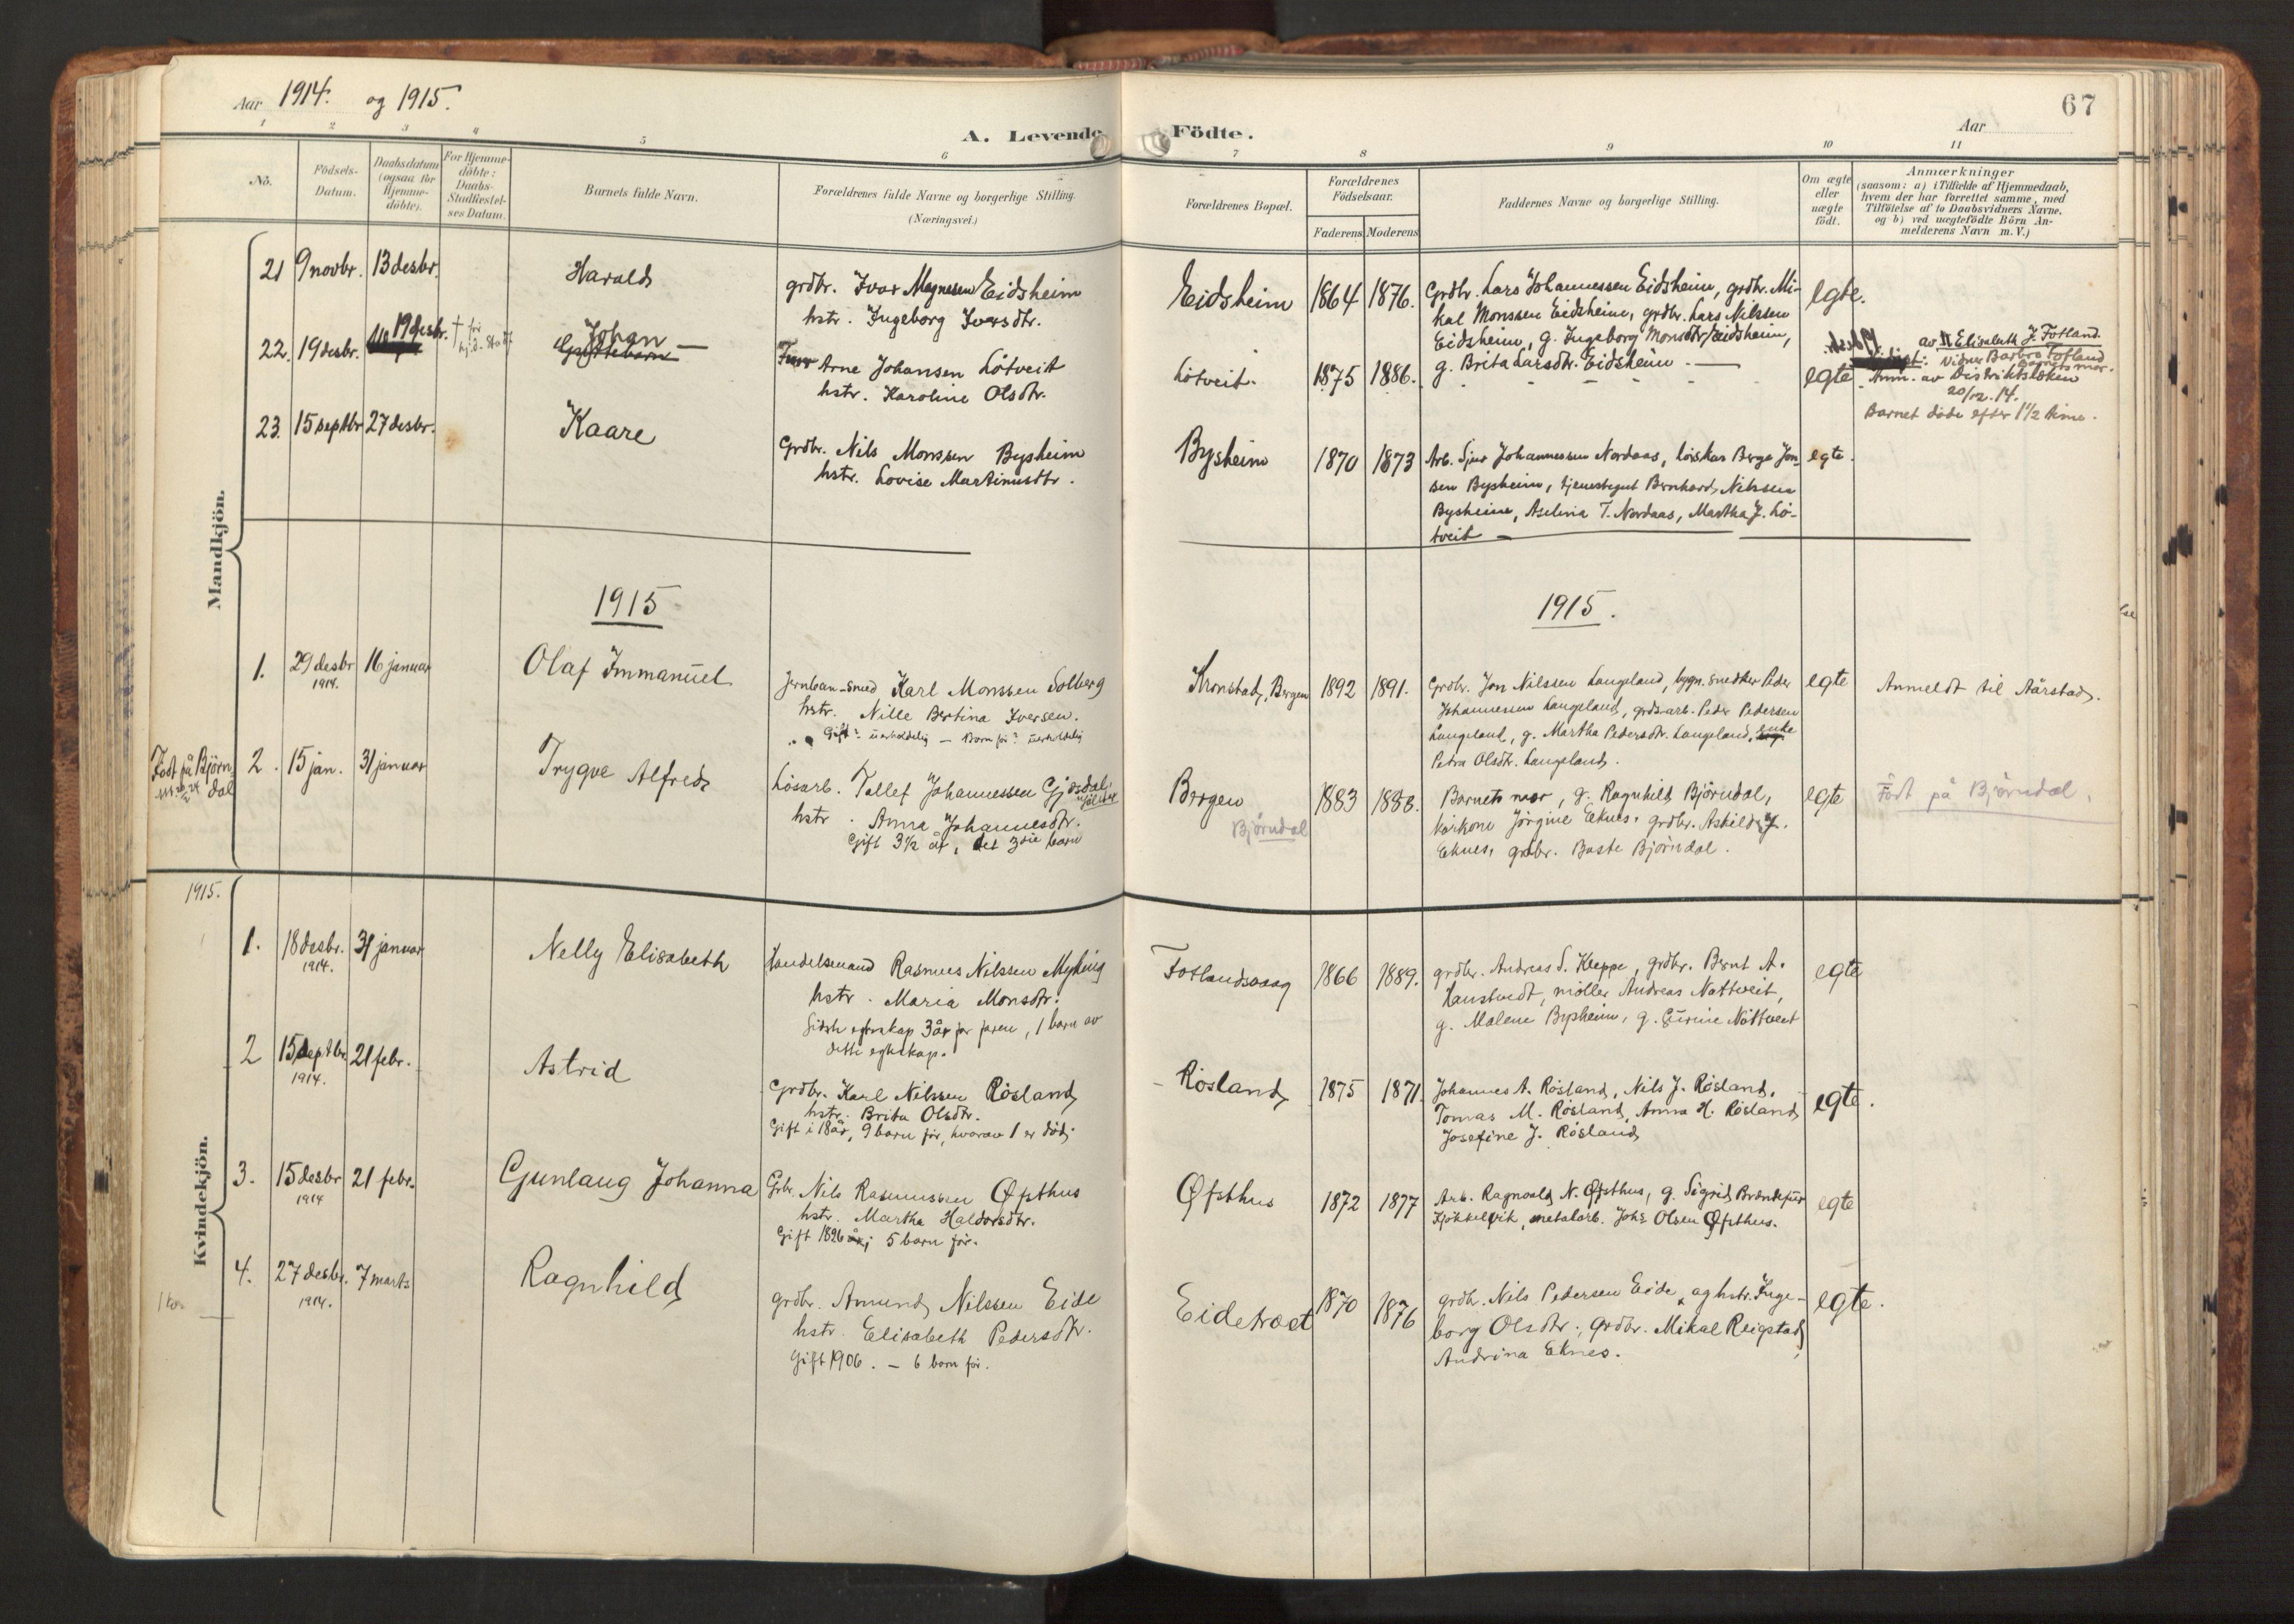 Aar 1914. og 1915.
A. Levende Födte.
Aar
67
1 2 3 4 5 6 7 8 9 10 11
No.
Födsels-
Datum.
Daabsdatum
(ogsaa for
Hjemme-
döbte).
For Hjemme-
döbte:
Daabs-
Stadfæstel-
ses Datum.
Barnets fulde Navn.
Forældrenes fulde Navne og borgerlige Stilling.
(Næringsvei.)
Forældrenes Bopæl.
Forældrenes
Födselsaar.
Faderens Moderens
Faddernes Navne og borgerlige Stilling.
Om ægte
eller
uægte
födt.
Anmærkninger
(saasom: a) i Tilfælde af Hjemmedaab,
hvem der har forrettet samme, med
Tilföielse af to Daabsvidners Navne,
og b) ved uægtefödte Börn An-
melderens Navn m. V.)
Mandkjön.
21 9 novbr. 13 desbr. Harald
grdbr. Ivar Magnesen Eidsheim
hstr. Ingeborg Iversdtr.
Eidsheim 1864 1876.
Grdbr. Lars Johannessen Eidsheim, grdbr. Mi-
kal Monssen Eidsheim, grdbr. Lars Nilssen
Eidsheim, g. Ingeborg Monsdtr. Eidsheim,
g. Brita Larsdtr. Eidsheim. —
egte.
22. 19 desbr. 19 desbr. † før
Johan —
Arne Johansen Lötveit
hstr. Karoline Olsdtr.
Lötveit. 1875 1886. egte
av Elisabeth J. Fotland.
Vidner Barbro Fotland
Barnets mor.
Anm. av Distriktslæken
20/12. 14.
Barnet døde efter 1½ time.
23. 15 septbr 27 desbr. Kaare
Grdbr. Nils Monssen Bysheim
hstr. Lovise Martinusdtr.
Bysheim 1870 1873
Arb. Sjur Johannessen Nordaas, løiskar Berge Jon-
sen Bysheim, tjenestegut Bernhard Nilssen
Bysheim, Aselina T. Nordaas, Martha J. Lö-
tveit —
egte.
1915
1915.
1. 29 desbr 1914. 16 januar Olaf Immanuel
Jernban-smed Karl Monssen Solberg
hstr. Nille Bertina Iversen.
Gift? uerholdelig — Barn før? uerholdelig
Kronstad, Bergen 1892 1891.
Grdbr. Jon Nilssen Langeland, bygn. snedker Peder
Johannessen Langeland, grdsarb. Peder Pedersen
Langeland, g. Martha Pedersdtr. Langeland, enke
Petra Olsdtr. Langeland.
egte Anmeldt til Aarstad.
Født på Björn-
dal
2. 15 jan. 31 januar Trygve Alfred
Løsarb. Tollef Johannessen Gjesdal,
hstr. Anna Johannesdtr.
Gift 3½ år, det 3die barn
Bergen
Bjørndal
1883 1888.
Barnets mor, g. Ragnhild Björndal,
Jörgine Eknes, grdbr. Askild J.
Eknes, grdbr. Baste Björndal.
egte Født på Björndal.
1915.
Kvindekjön.
1. 18 desbr. 1914. 31 januar Nelly Elisabeth
Handelsmand Rasmus Nilssen Myking
hstr. Maria Monsdtr.
Sidste egteskap 3 år for faren, 1 barn av
dette egteskap.
Fotlandsvaag 1866 1889.
grdbr. Andreas S. Kleppe, grdbr. Bernt A.
Hanstvedt, möller Andreas Nattveit,
g. Malene Bysheim, g. Gurine Nöttveit
egte
2 15 septbr. 1914. 21 febr. Astrid
Grdbr. Karl Nilssen Rösland
hstr. Brita Olsdtr.
Gift i 18 år, 9 barn før, hvorav 1 er død.
Rösland 1875 1871.
Johannes A. Rösland, Nils J. Rösland,
Tomas M. Rösland, Anna H. Rösland
Josefine J. Rösland
egte.
3. 15 desbr 1914 21 febr. Gunlaug Johanna
Grbr. Nils Rasmussen Øfsthus
hstr. Martha Haldorsdtr.
Gift 1896; 5 barn før.
Øfsthus 1872 1877
Arb. Ragnvald N. Øfsthus, g. Sigrid
metalarb. Johs Olsen Øfsthus.
egte
4. 27 desbr. 1914. 7 marts Ragnhild
grdbr. Amund Nilssen Eide
hstr. Elisabeth Pedersdtr.
Gift 1906. — 6 barn før.
Eidetræet 1870 1876
grdbr. Nils Pedersen Eide og hstr. Inge-
borg Olsdtr., grdbr. Mikal Reigstad,
Andrina Eknes.
egte.